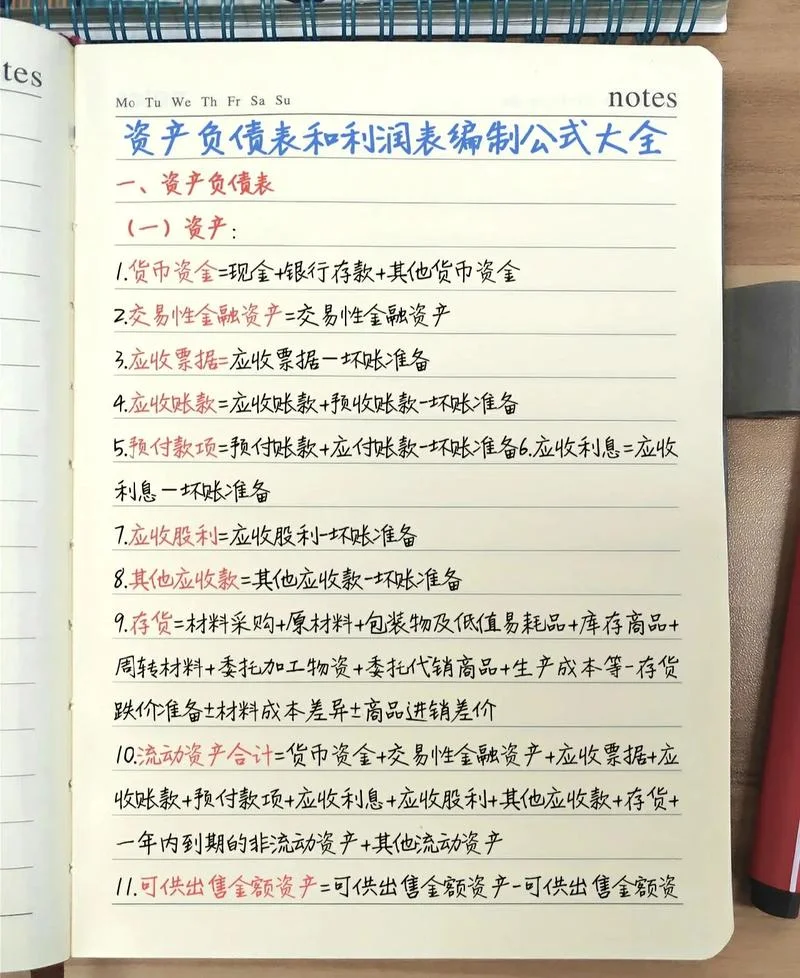 tes
Mo Tu We Th Fr Sa Su
notes
资产负债表和利润表编制公式大全
一、资产负债表
(一)资产:
1.货币资金=现金+银行存款+其他货币资金
2.交易性金融资产=交易性金融资产
3.应收票据=应收票据-坏账准备
4.应收账款=应收账款+预收账款-坏账准备
5.预付款项=预付账款+应付账款-坏账准备6.应收利息=应收
利息-坏账准备
7.应收股利=应收股利-坏账准备
8.其他应收款=其他应收款-坏账准备
9.存货=材料采购+原材料+包装物及低值易耗品+库存商品+
周转材料+委托加工物资+委托代销商品+生产成本等-存货
跌价准备±材料成本差异±商品进销差价
10.流动资产合计=货币资金+交易性金融资产+应收票据+应
收账款+预付款项+应收利息+应收股利+其他应收款+存货+
一年内到期的非流动资产+其他流动资产
11.可供出售金额资产=可供出售金额资产-可供出售金额资